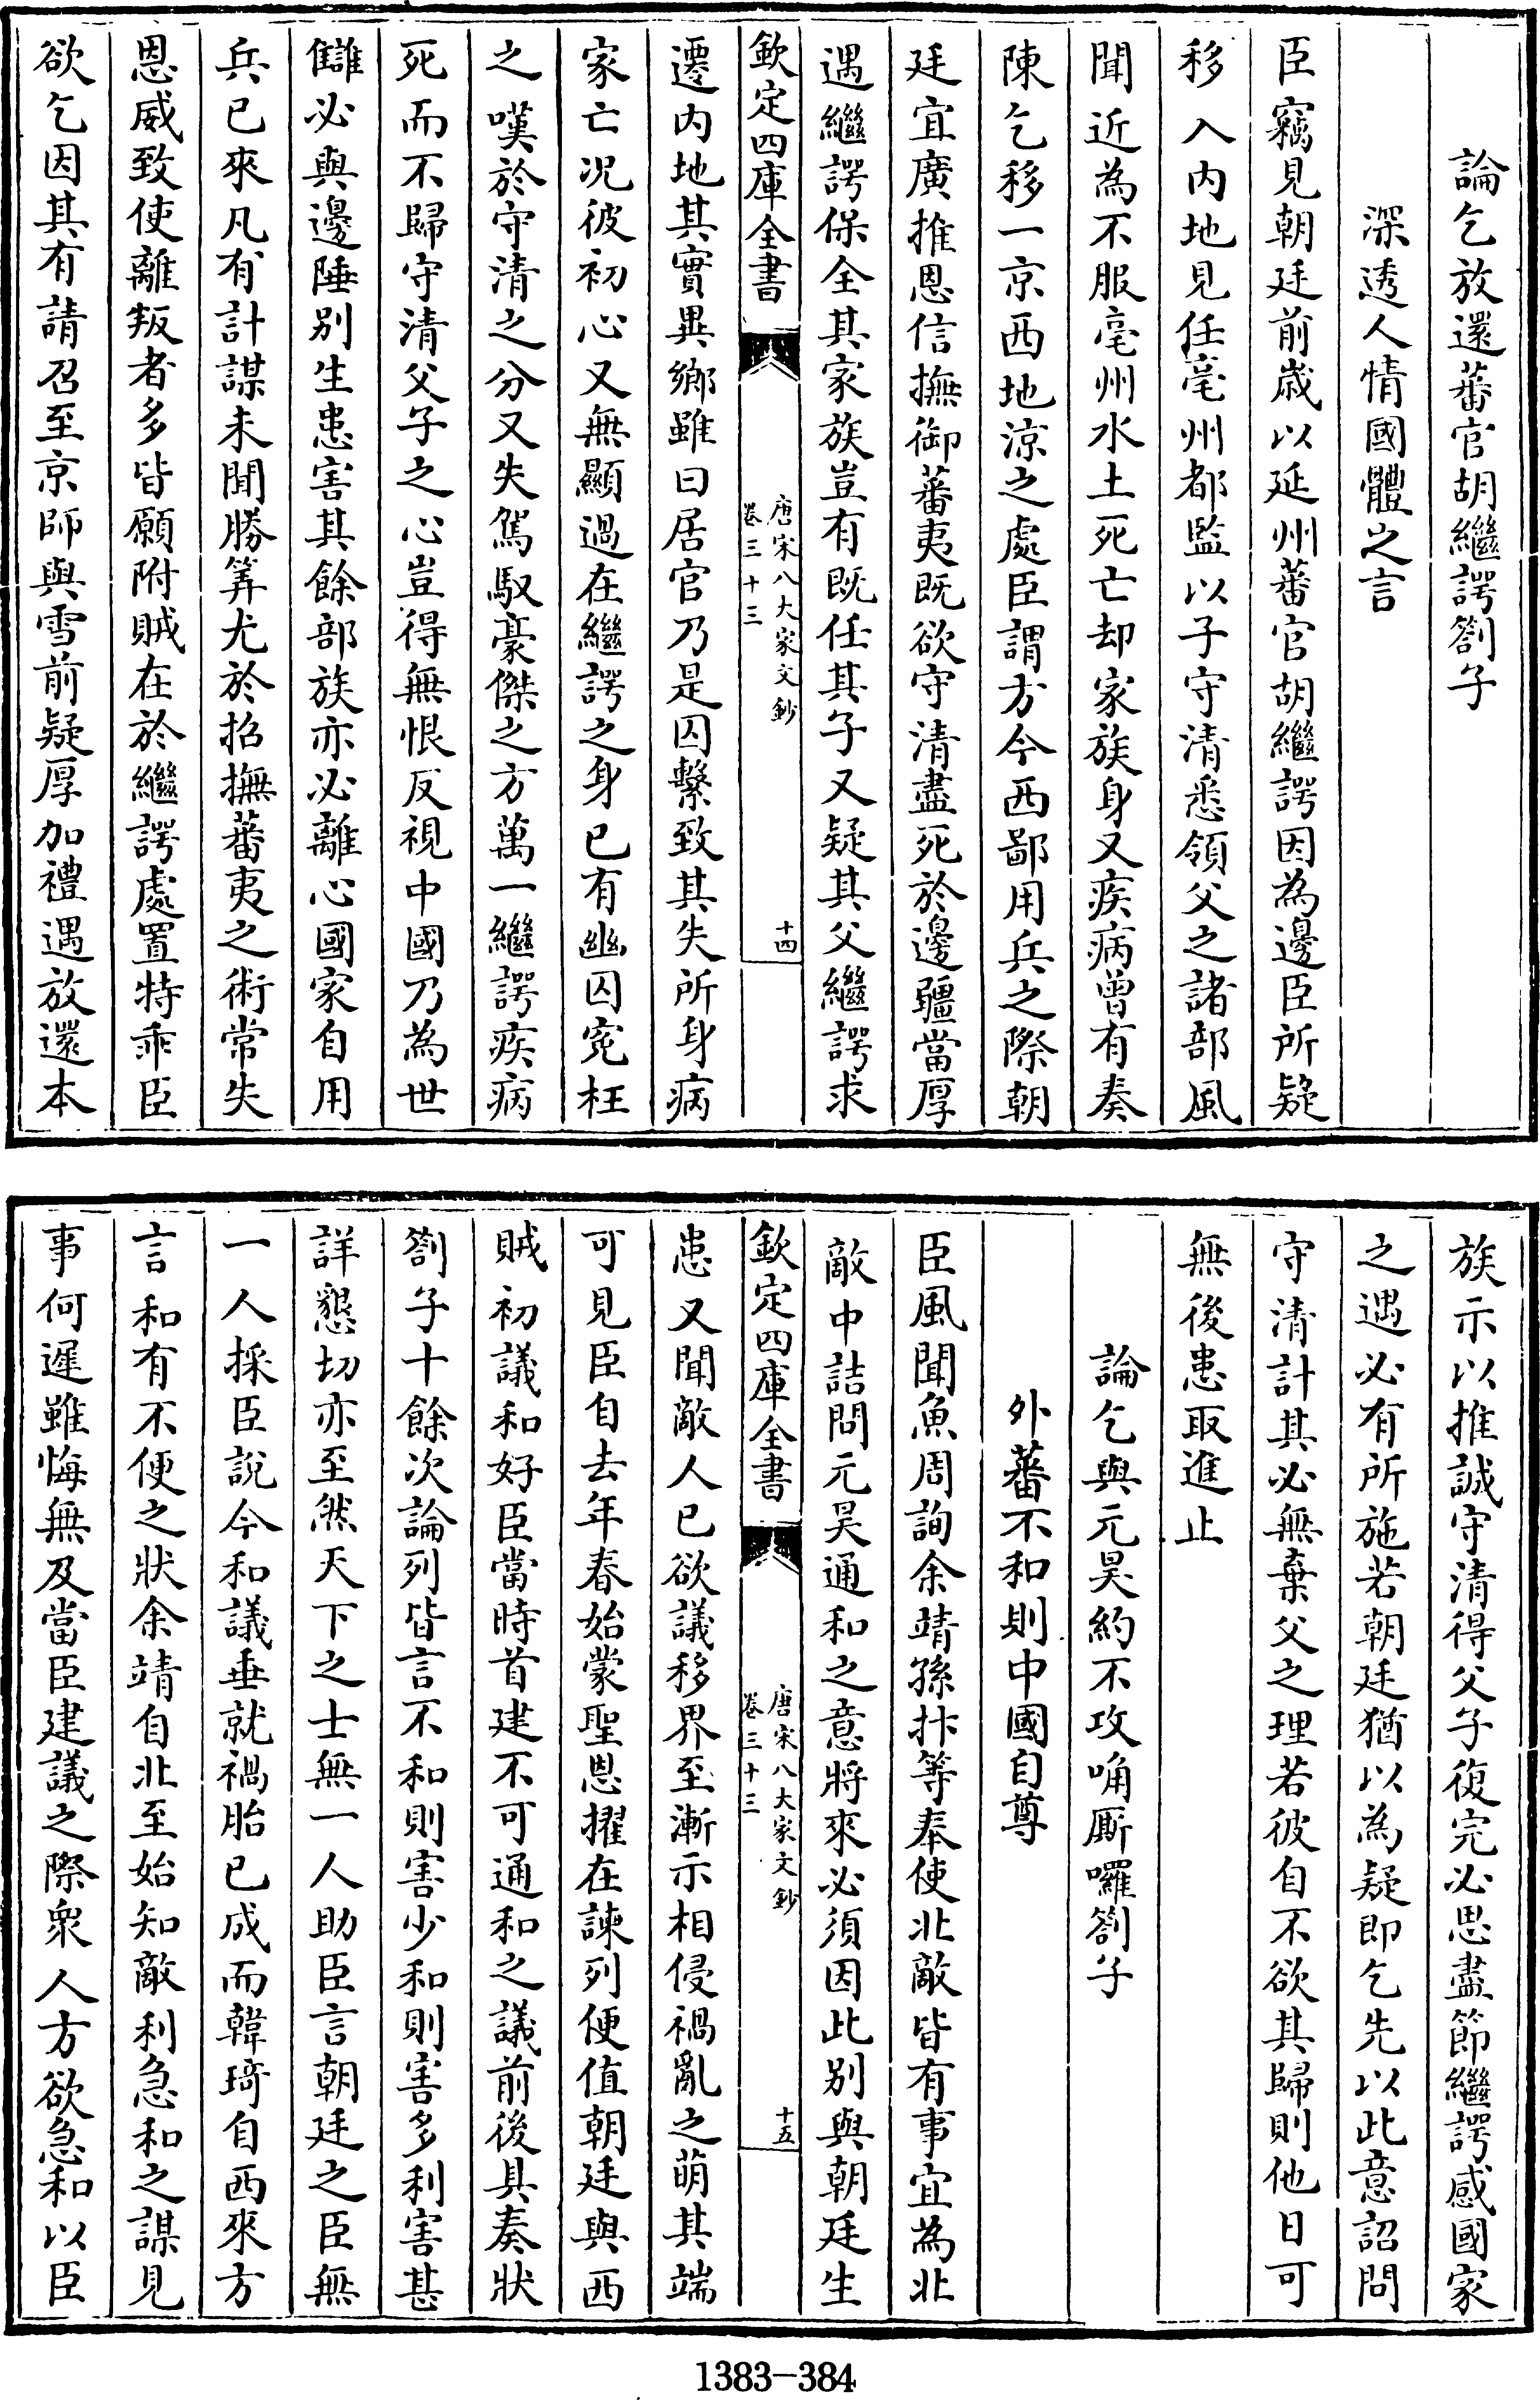 論乞放還蕃官胡繼諤劄子
深透人情國體之言
臣竊見朝廷前歲以延州蕃官胡繼諤因為邊臣所疑
移入内地見任亳州都監以子守清悉領父之諸部風
聞近為不服亳州水土死亡却家族身又疾病曾有奏
陳乞移一京西地涼之處臣謂方今西鄙用兵之際朝
廷宜廣推恩信撫御蕃夷既欲守清盡死於邊疆當厚
遇繼諤保全其家族豈有既任其子又疑其父繼諤求
欽定四庫全書
唐宋八大家文鈔
卷三十三
十四
遷内地其實異鄉雖曰居官乃是囚繫致其失所身病
家亡况彼初心又無顯過在繼諤之身已有幽囚寃枉
之嘆於守清之分又失駕馭豪傑之方萬一繼諤疾病
死而不歸守清父子之心豈得無恨反視中國乃為世
讎必與邊陲别生患害其餘部族亦必離心國家自用
兵已來凡有計謀未聞勝筭尤於招撫蕃夷之術常失
恩威致使離叛者多皆願附賊在於繼諤處置特乖臣
欲乞因其有請召至京師與雪前疑厚加禮遇放還本
族示以推誠守清得父子復完必思盡節繼諤感國家
之遇必有所施若朝廷猶以為疑即乞先以此意詔問
守清計其必無棄父之理若彼自不欲其歸則他日可
無後患取進止
論乞與元昊約不攻唃厮囉劄子
外蕃不和則中國自尊
臣風聞魚周詢余靖孫抃等奉使北敵皆有事宜為北
敵中詰問元昊通和之意將來必須因此别與朝廷生
欽定四庫全書
唐宋八大家文鈔
卷三十三
十五
患又聞敵人已欲議移界至漸示相侵禍亂之萌其端
可見臣自去年春始蒙聖恩擢在諫列便值朝廷與西
賊初議和好臣當時首建不可通和之議前後具奏狀
劄子十餘次論列皆言不和則害少和則害多利害甚
詳懇切亦至然天下之士無一人助臣言朝廷之臣無
一人採臣說今和議垂就禍胎已成而韓琦自西來方
言和有不便之狀余靖自北至始知敵利急和之謀見
事何遲雖悔無及當臣建議之際衆人方欲急和以臣
1383-384